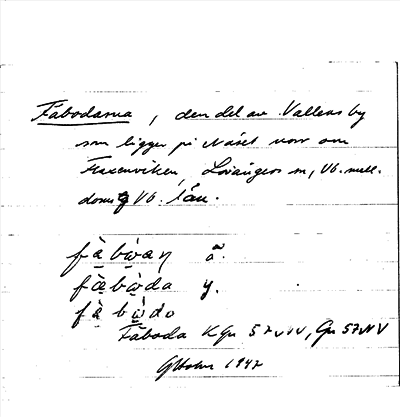 Fäbodarna, den del av Vallens by
som ligger på Näset norr om
Fraxenviken, Lövångers sn, Vb. mell.
doms Vb. län.
fà̤bẁ̤an ä̃.
fà̤bẁ̤da y.
fà̤ bẁ̤do
Fäboda K Gn 57 NV, Gn 57 NV
GHolm 1947